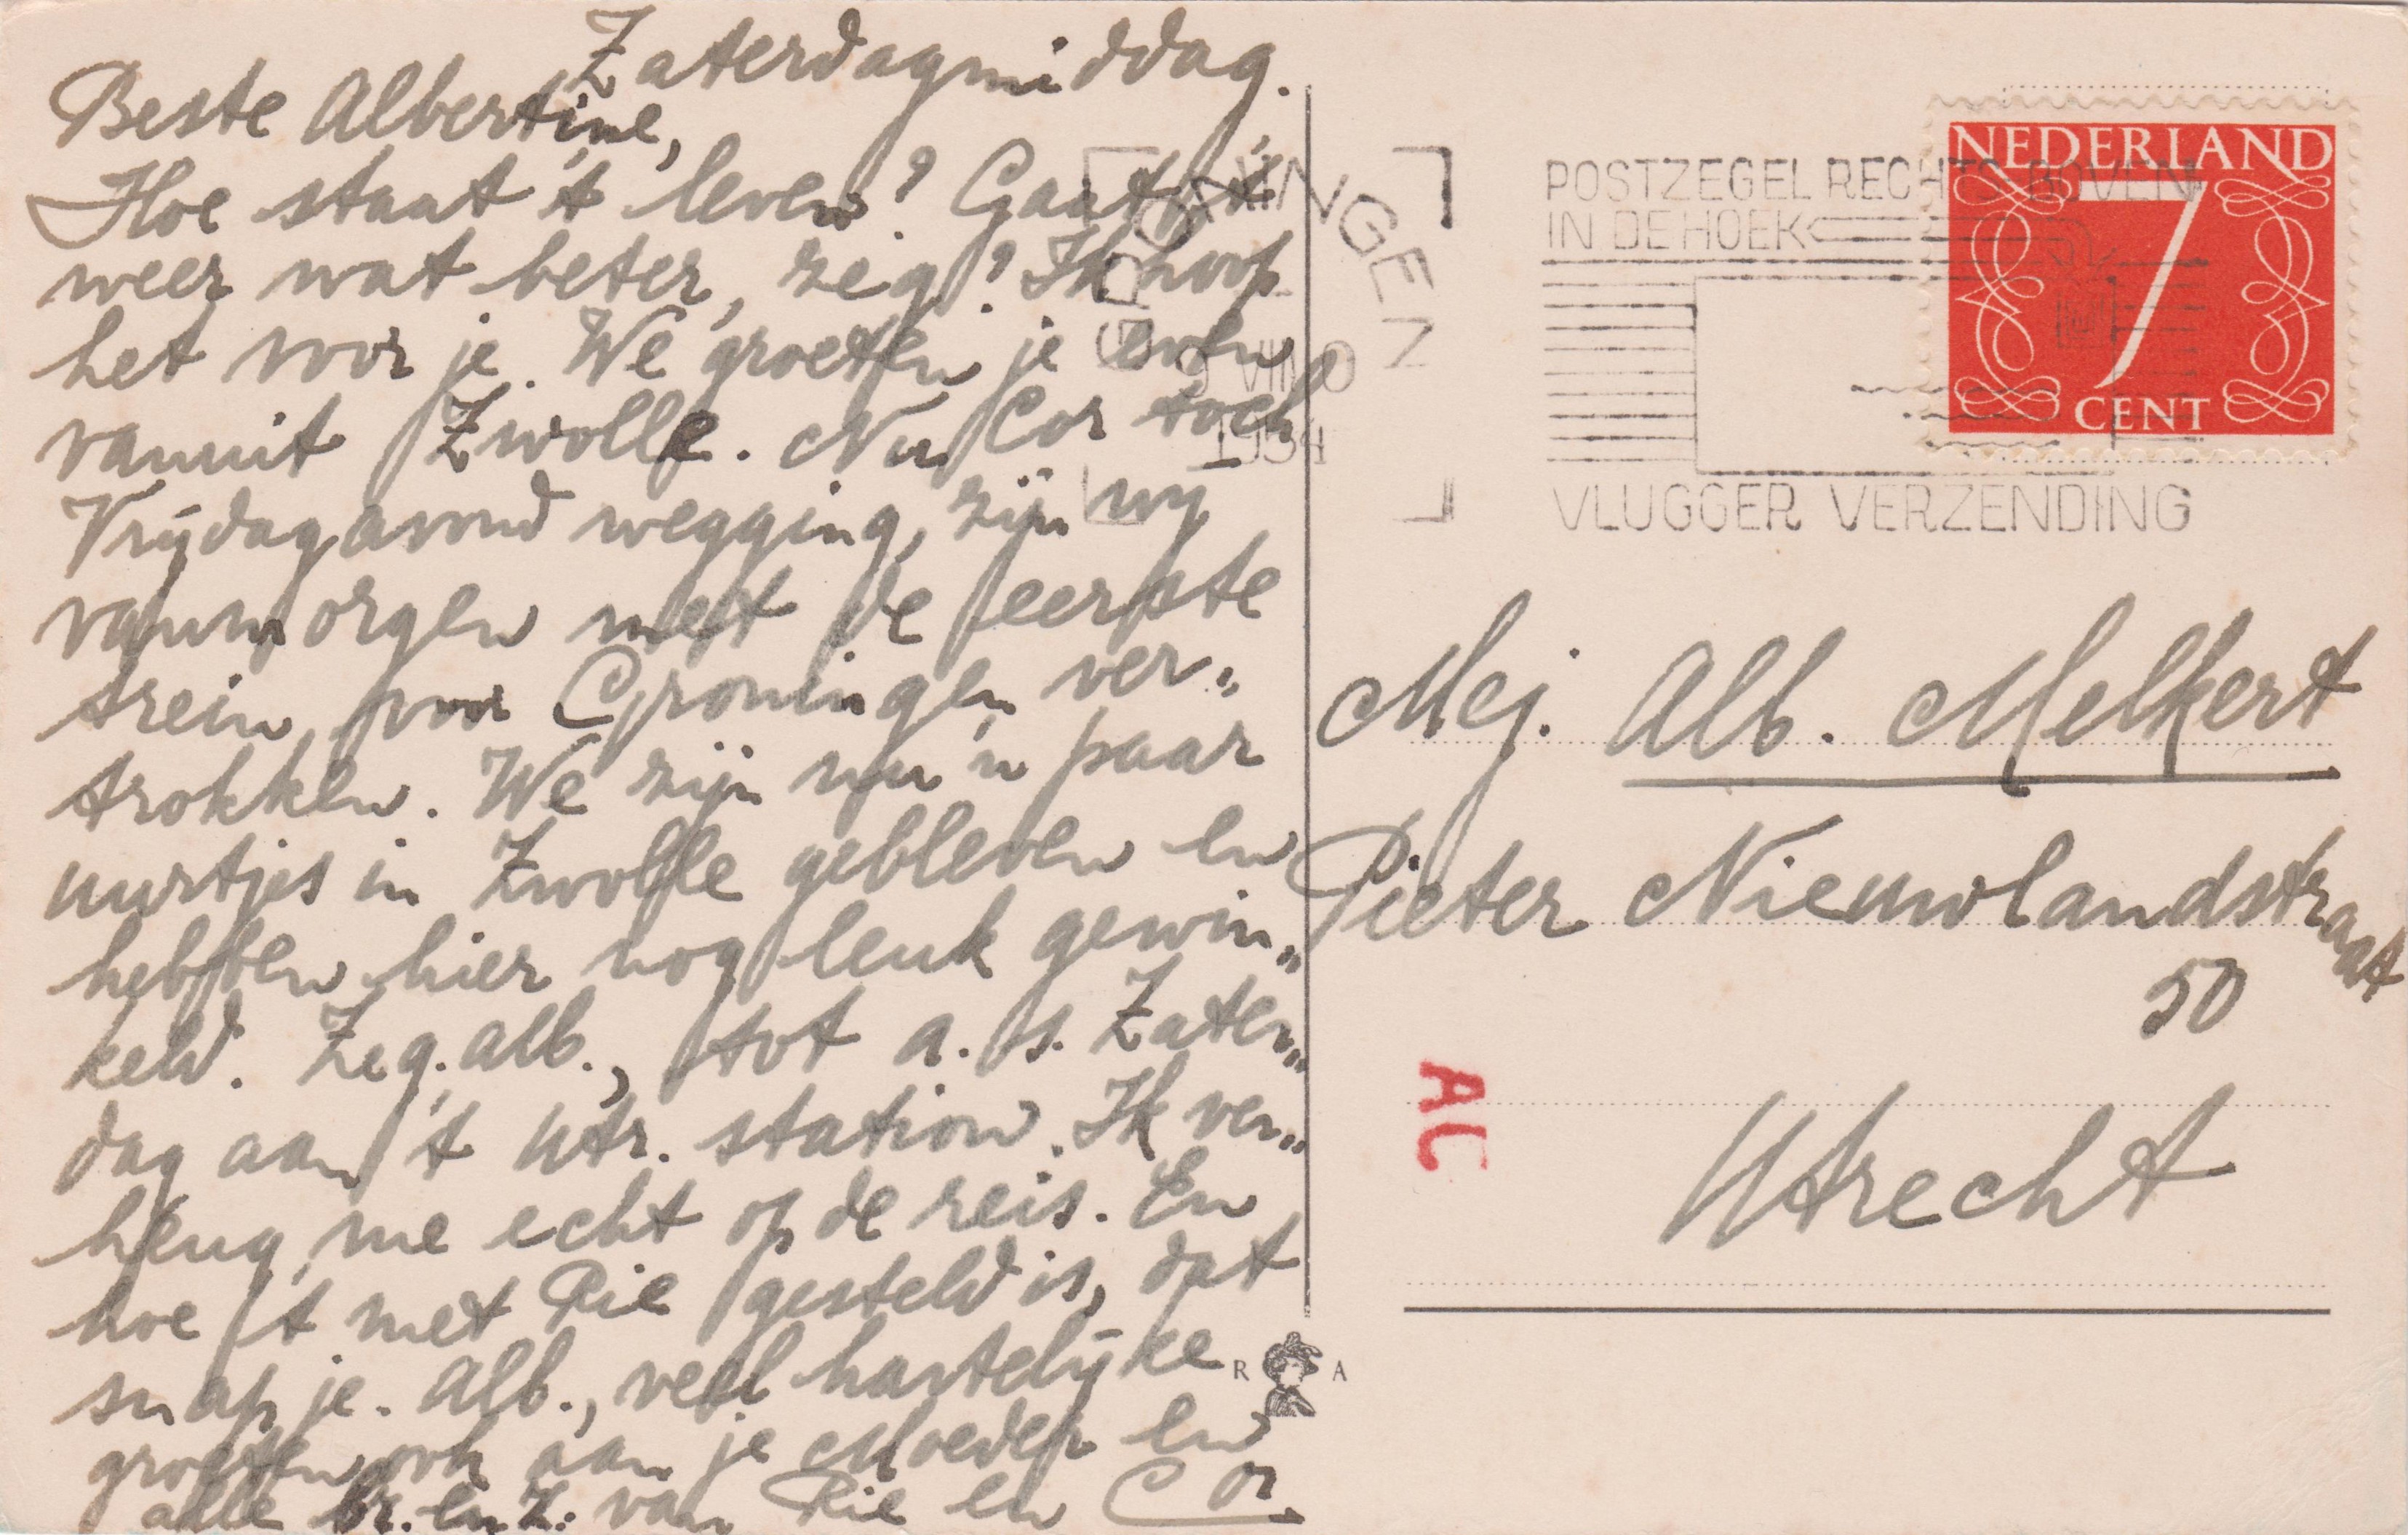 Zaterdagmiddag.
Beste Albertine,
Hoe staat 't leven? Gaat 't
weer wat beter, zeg? Ik hoop
het voor je. We groeten je even
vanuit Zwolle. Nu Cor toch
Vrijdagavond wegging, zijn wij
vanmorgen met de eerste
trein voor Groningen ver„
trokken. We zijn nu 'n paar
uurtjes in Zwolle gebleven en
hebben hier nog leuk gewin„
keld. Zeg. Alb., tot a. s. Zater„
dag aan 't Utr. station. Ik ver„
heug me echt op de reis. En
hoe 't met Rie gesteld is, dat
snap je. Alb., veel hartelijke
groeten ook aan je Moeder en
alle br. en z. van Rie en Cor
GRONINGEN
1954
POSTZEGEL RECHTS BOVEN
IN DE HOEK
VLUGGER VERZENDING
NEDERLAND
7
CENT
Mej. Alb. Melkert
Pieter Nieuwlandstraat
50
Utrecht
AC
R A